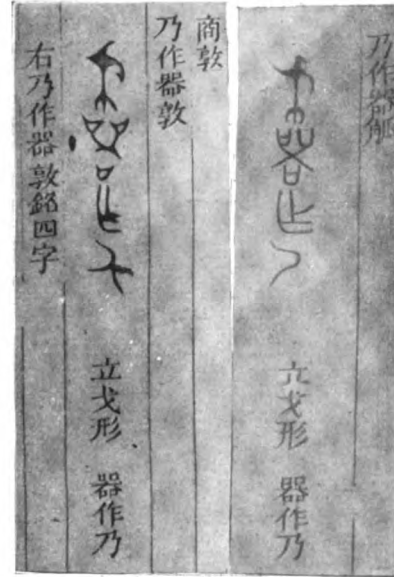 乃作器觶
立戈形 器作乃
商敦
乃作器敦
立戈形 器作乃
右乃作器敦銘四字